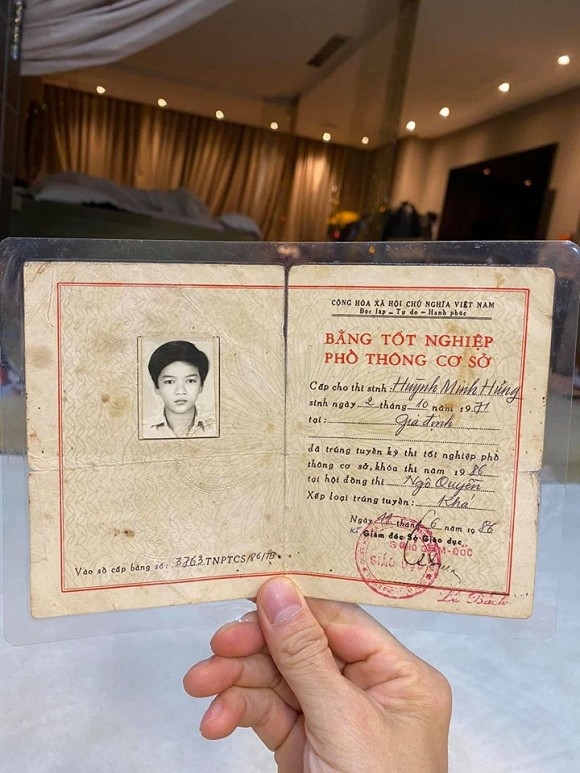 CỘNG HÒA XÃ HỘI CHỦ NGHĨA VIỆT NAM
Độc lập – Tự do – Hạnh phúc
BẰNG TỐT NGHIỆP
PHỔ THÔNG CƠ SỞ
Cấp cho thí sinh: Huỳnh Minh Hưng
sinh ngày 2 tháng 10 năm 1971
tại: Gia định
đã trúng tuyển kỳ thi tốt nghiệp phổ
thông cơ sở, khóa thi năm 1986
tại hội đồng thi Ngô Quyền
Xếp loại trúng tuyển: Khá
Ngày 11 tháng 6 năm 1986
Giám đốc Sở Giáo dục
GIÁO DỤC
Lê Bách
Vào sổ cấp bằng số: 3763.TNPTCS/86/TB